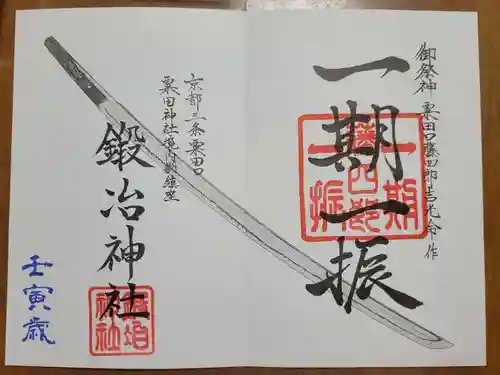 御祭神 粟田口藤四郎吉光命作
一期一振
一期
藤四郎
振
京都三条粟田口
粟田神社境内御鎮座
鍛冶神社
鍛冶
神社
壬寅歳